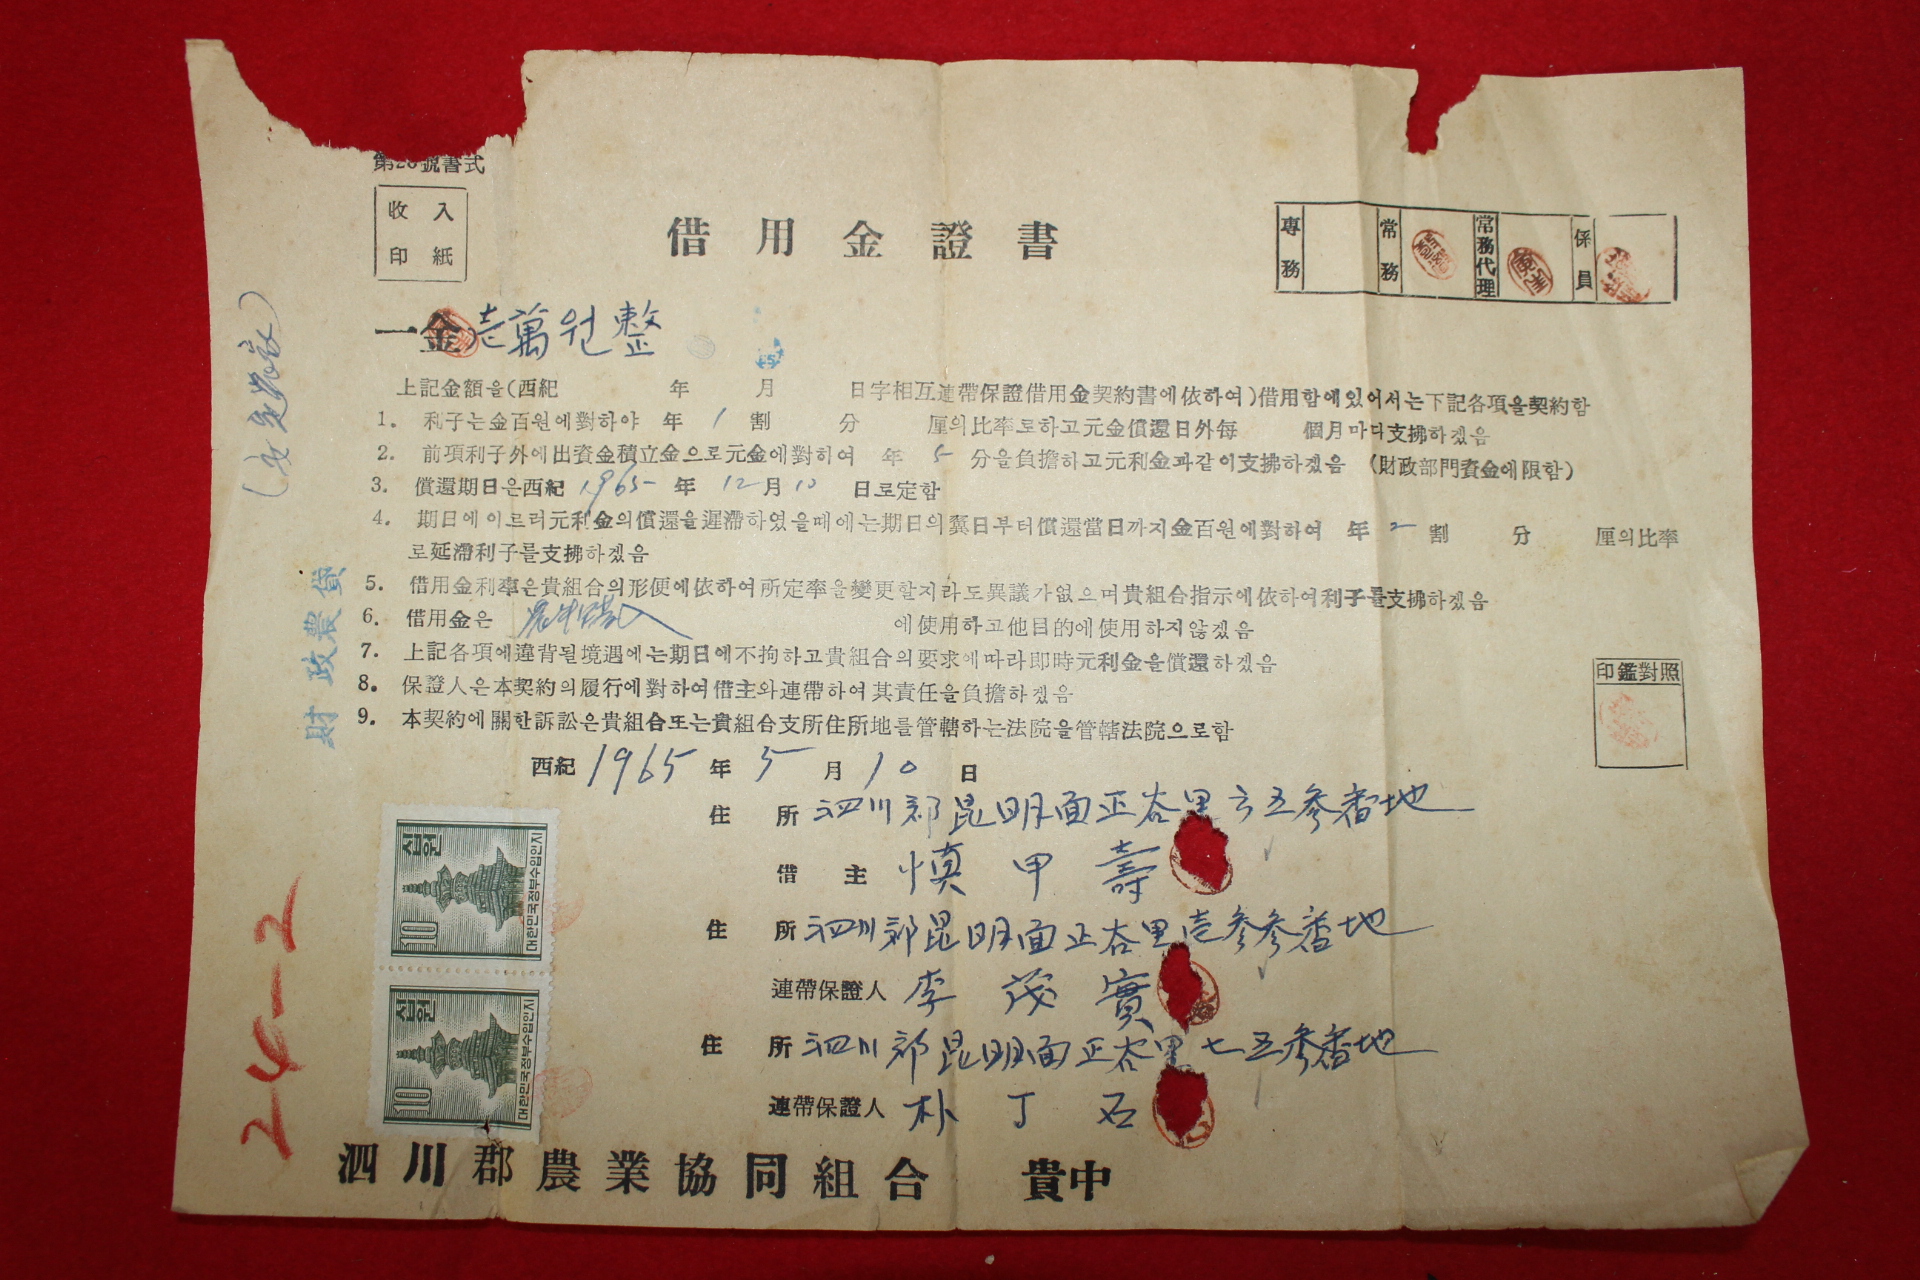 號書式
收入
印紙
借用金證書
専務
常務
常務代理
係員
一金 壱萬원整
上記金額을(西紀 年 月 日字相互連帶保證借用金契約書에依하여)借用함에있어서는下記各項을契約함
1. 利子는金百원에對하야 年 1 割 分 厘의比率로하고元金償還日外每 個月마다支拂하겠음
2. 前項利子外에出資金積立金으로元金에對하여 年 5 分을負擔하고元利金과같이支拂하겠음 (財政部門資金에限함)
3. 償還期日은西紀 1965 年 12 月 10 日로定함
4. 期日에이르러元利金의償還을遲滯하였을때에는期日의翼日부터償還當日까지金百원에對하여 年 2 割 分 厘의比率
로延滯利子를支拂하겠음
5. 借用金利率은貴組合의形便에依하여所定率을變更할지라도異議가없으며貴組合指示에依하여利子를支拂하겠음
6. 借用金은 에使用하고他目的에使用하지않겠음
7. 上記各項에違背될境遇에는期日에不拘하고貴組合의要求에따라即時元利金을償還하겠음
8. 保證人은本契約의履行에對하여借主와連帶하여其責任을負擔하겠음
9. 本契約에關한訴訟은貴組合또는貴組合支所住所地를管轄하는法院을管轄法院으로함
印鑑對照
財政農貸
西紀 1965 年 5 月 10 日
住所 泗川郡昆明面正谷里六五參番地
借主 愼甲壽
住所 泗川郡昆明面正谷里壱參參番地
連帶保證人 李茂實
住所 泗川郡昆明面正谷里七五參番地
連帶保證人 朴丁石
십원
10
대한민국정부수입인지
십원
10
대한민국정부수입인지
泗川郡農業協同組合 貴中